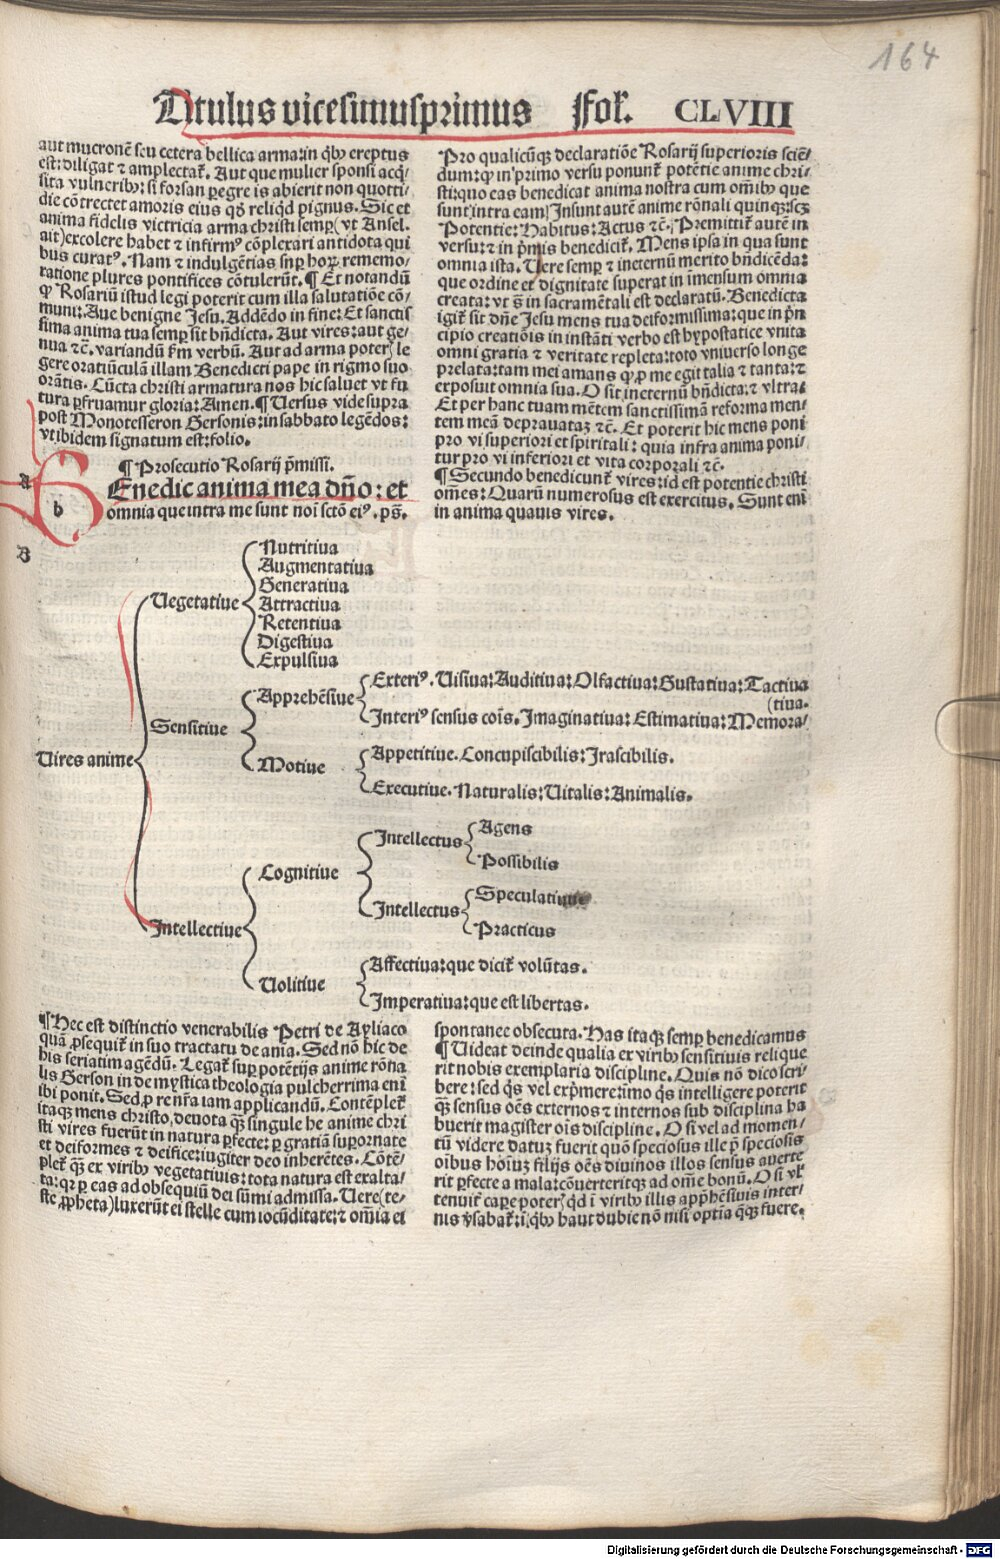 164
Titulus vicesimusprimus Fol. CLVIII
aut mucronē seu cetera bellica arma: in qb᷒ ereptus
est: diligat ⁊ amplectat᷑. Aut que mulier sponsi acq̄⸗
sita vulnerib᷒: si forsan ꝑegre is abierit non quotti⸗
die cōtrectet amoris eius qd̄ reliqͥd pignus. Sic et
anima fidelis victricia arma christi semꝑ (vt Ansel.
ait) excolere habet ⁊ infirmꝰ cōplexari antidota qui
bus curatꝰ. Nam ⁊ indulgētias suꝑ hoꝝ rememo⸗
ratione plures pontifices cōtulerūt. ¶ Et notandū
ꝙ Rosariū istud legi poterit cum illa salutatiōe cō⸗
muni: Aue benigne Jesu. Addēdo in fine: Et sanctis
sima anima tua semꝑ sit bn̄dicta. Aut vires: aut ge⸗
nua ⁊c̄. variandū ẜm verbū. Aut ad arma poterͥ le
gere oratiūculā illam Benedicti pape in rigmo suo
orātis. Cūcta christi armatura nos hic saluet vt fu
tura ꝑfruamur gloria: Amen. ¶ Versus vide supra
post Monotesseron Gersonis: in sabbato legēdos:
vt ibidem signatum est: folio.
¶ Prosecutio Rosarij p̄missi.
A
b
Enedic anima mea dn̄o: et
omnia que intra me sunt noī sctō eiꝰ. ps̄.
B
Pro qualicūqꝫ declaratiōe Rosarij superioris sciē⸗
dum: ꝙ in primo versu ponunt᷑ potētie anime chri⸗
sti: quo eas benedicat anima nostra cum om̄ib᷒ que
sunt intra eam. Insunt autē anime rōnali quinqꝫ: scꝫ
Potentie: Habitus: Actus ⁊c̄. Premittit᷑ autē in
versu: ⁊ in p̄mis benedicit᷑. Mens ipsa in qua sunt
omnia ista. Uere semꝑ ⁊ ineternū merito bn̄dicēda:
que ordine et dignitate superat in īmensum omnia
creata: vt s̄ in sacramētali est declaratū. Benedicta
igit᷑ sit dn̄e Jesu mens tua deiformissima: que in pͥn
cipio creatiōis in instāti verbo est hypostatice vnita
omni gratia ⁊ veritate repleta: toto vniuerso longe
prelata: tam mei amans ꝙ ꝓ me egit talia ⁊ tanta: ⁊
exposuit omnia sua. O sit ineternū bn̄dicta: ⁊ vltra.
Et per hanc tuam mētem sanctissimā reforma men⸗
tem meā deprauataꝫ ⁊c̄. Et poterit hic mens poni
pro vi superiori et spiritali: quia infra anima poni⸗
tur pro vi inferiori et vita corporali ⁊c̄.
¶ Secundo benedicunt᷑ vires: id est potentie christi
om̄es: Quarū numerosus est exercitus. Sunt em̄
in anima quauis vires.
Vires anime
Vegetatiue
Nutritiua
Augmentatiua
Generatiua
Attractiua
Retentiua
Digestiua
Expulsiua
Sensitiue
Apprehēsiue
Exteriꝰ. Uisiua: Auditiua: Olfactiua: Gustatiua: Tactiua
(tiua.
Interiꝰ sensus coīs. Imaginatiua: Estimatiua: Memora⸗
Motiue
Appetitiue. Concupiscibilis: Irascibilis.
Executiue. Naturalis: Uitalis: Animalis.
Intellectiue
Cognitiue
Intellectus
Agens
Possibilis
Intellectus
Speculatiuus
Practicus
Uolitiue
Affectiua: que dicit᷑ volūtas.
Imperatiua: que est libertas.
¶ Hec est distinctio venerabilis Petri de Ayliaco
quā ꝓsequit᷑ in suo tractatu de aīa. Sed nō hic de
his seriatim agēdū. Legat᷑ suꝑ potētijs anime rōna
lis Gerson in de mystica theologia pulcherrima eni
ibi ponit. Sed ꝓ re nr̄a iam applicandū. Contēplet᷑
itaqꝫ mens christo, deuota qꝫ̄ singule he anime chri
sti vires fuerūt in natura ꝑfecte: ꝑ gratiā suꝑornate
et deiformes ⁊ deifice: iugiter deo inherētes. Cōtē⸗
plet᷑ qꝫ̄ ex virib᷒ vegetatiuis: tota natura est exalta⸗
ta: qr ꝑ eas ad obsequiū dei sūmi admissa. Uere (te⸗
ste ꝓpheta) luxerūt ei stelle cum iocūditate: ⁊ om̄ia ei
spontanee obsecuta. Has itaqꝫ semꝑ benedicamus
¶ Uideat deinde qualia ex virib᷒ sensitiuis relique
rit nobis exemplaria discipline. Quis nō dico scri
bere: sed qͥs vel exp̄mere: īmo qͥs intelligere poterit
qꝫ̄ sensus oēs externos ⁊ internos sub disciplina ha
buerit magister oīs discipline. O si vel ad momen⸗
tū videre datuꝫ fuerit quō speciosus ille p̄ speciosis
oībus hoīuꝫ filijs oēs diuinos illos sensus auerte
rit ꝑfecte a mala: cōuerteritqꝫ ad om̄e bonū. O si vl᷑
tenuit᷑ caꝑe poterͥ qd̄ ī virib᷒ illis app̄hēsiuis inter⸗
nis v̓sabat᷑: ī qb᷒ haut dubie nō nisi optīa qꝫ̄ fuere.
Digitalisierung gefördert durch die Deutsche Forschungsgemeinschaft - DFG